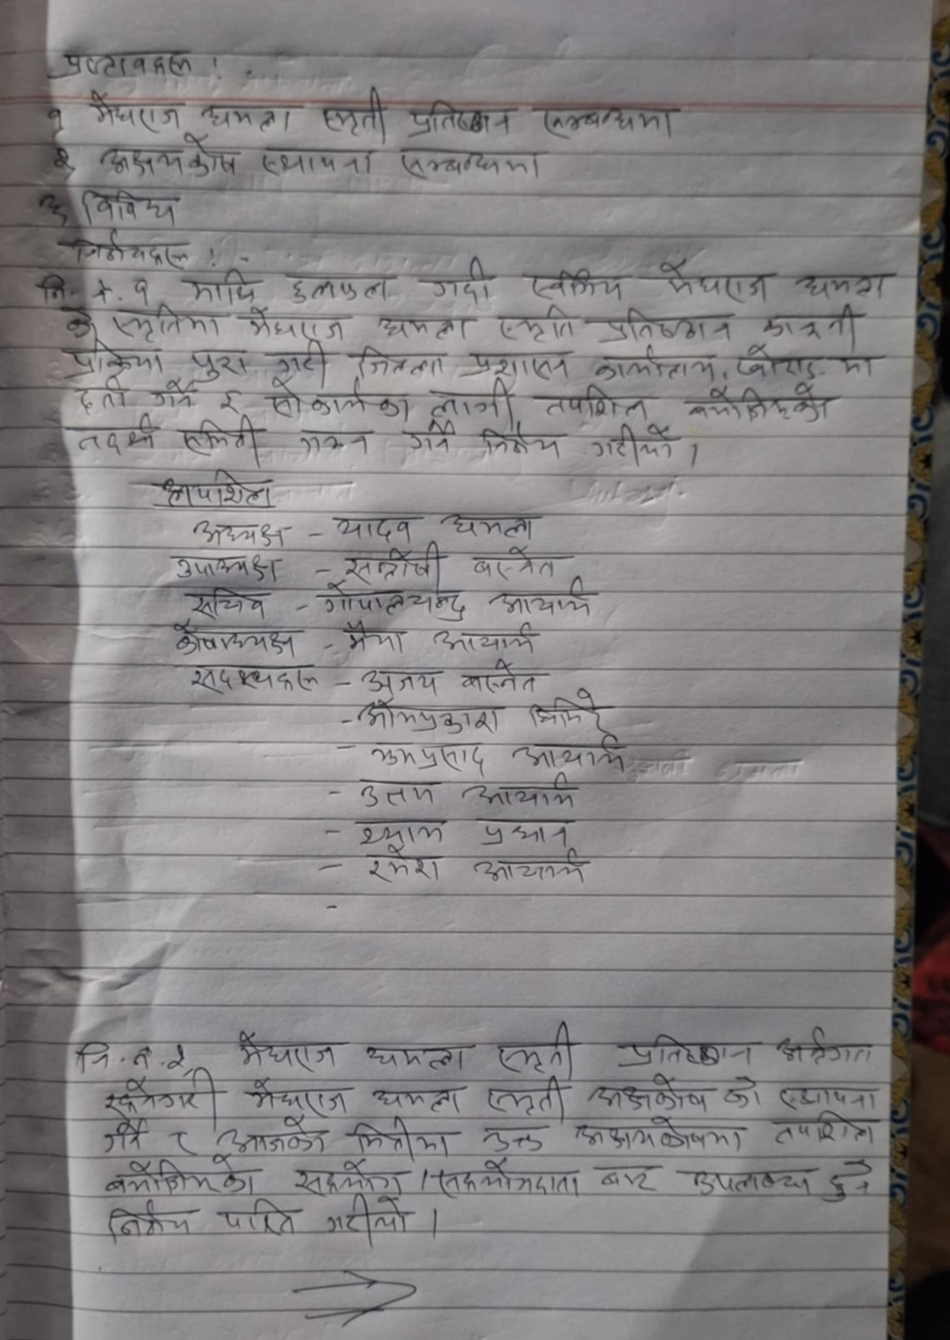 प्रस्तावहरू :
१ मेघराज धमला स्मृती प्रतिष्ठान सम्बन्धमा
२ अक्षयकोष स्थापना सम्बन्धमा
३ विविध
निर्णयहरू : -
नि. नं. १ माथि छलफल गर्दा स्वर्गिय मेघराज धमला
को स्मृतिमा मेघराज धमला स्मृति प्रतिष्ठान कानूनी
प्रक्रिया पुरा गरी जिल्ला प्रशासन कार्यालय, मा
दर्ता गर्ने र सो कार्यका लागी तपशिल बमोजिमको
तदर्थ समिती गठन गर्ने निर्णय गरीयो ।
तपशिल
अध्यक्ष - यादव धमला
उपाध्यक्ष - बस्नेत
सचिव - गोपालचन्द्र आचार्य
कोषाध्यक्ष - मैया आचार्य
सदस्यहरू - अजय बस्नेत
- ओमप्रकाश घिमिरे
- आचार्य
- उत्तम आचार्य
- श्याम प्रधान
- रमेश आचार्य
-
नि. नं. २, मेघराज धमला स्मृती प्रतिष्ठान अर्न्तगत
रहनेगरी मेघराज धमला स्मृती अक्षकोष को स्थापना
गर्ने र आजको मितीमा उक्त अक्षयकोषमा तपशिल
बमोजिमको सहयोग / सहयोगदाता बाट उपलब्ध हुने
निर्णय पारित गरीयो ।